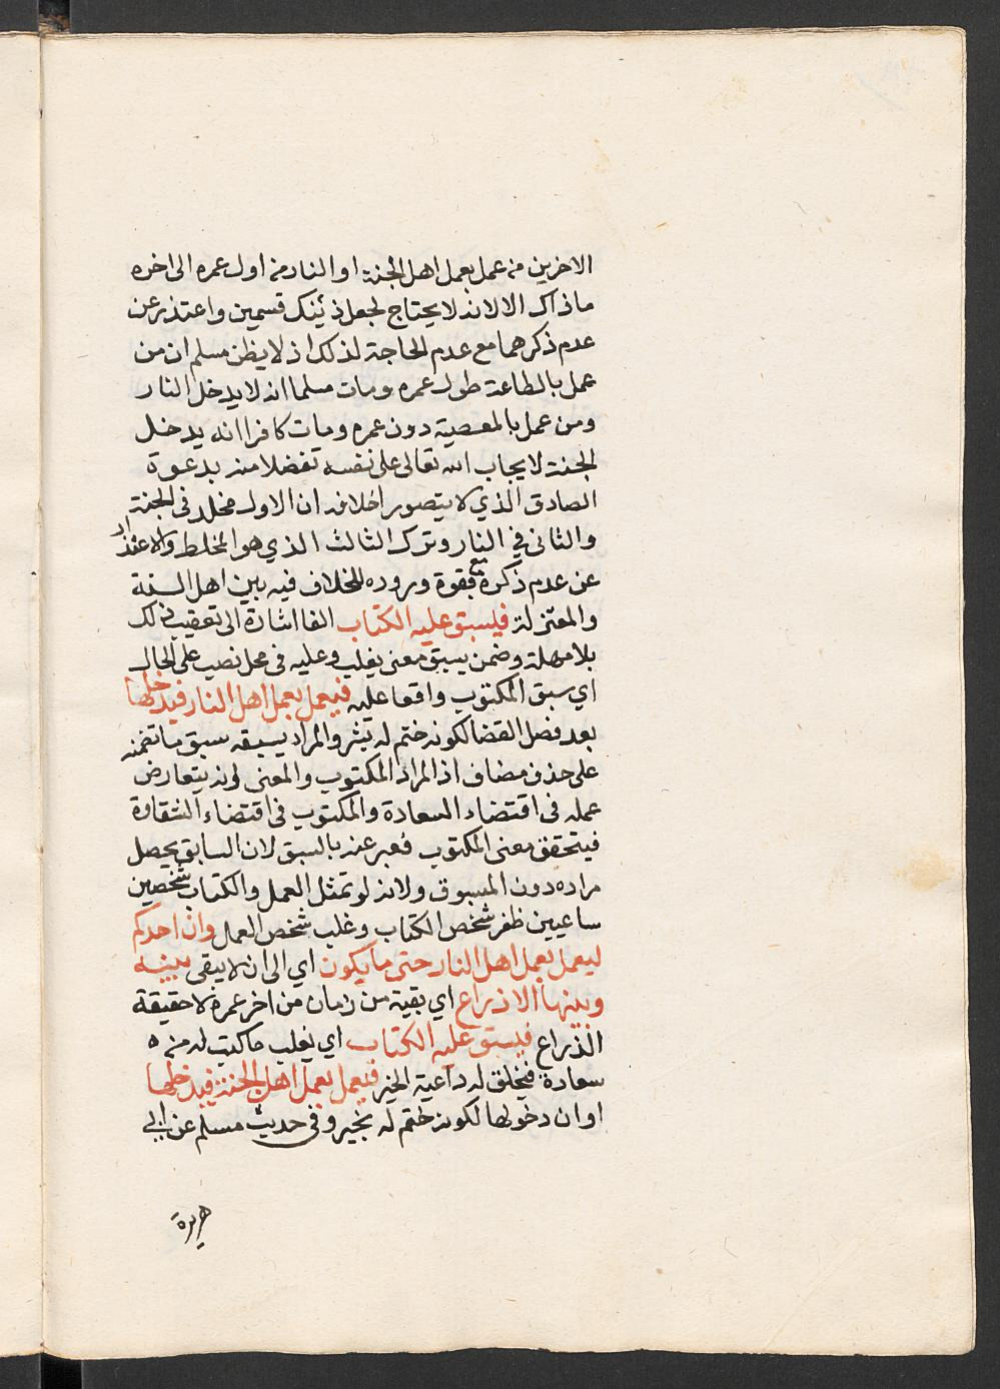 الاخرين من عمل بعمل اهل الجنة او النار من اول عمره الى اخره
ما ذاك الا لانه لا يحتاج لجعل ذينك قسمين واعتذر عن
عدم ذكرهما مع عدم الحاجة لذلك اذ لا يظن مسلم ان من
عمل بالطاعة طول عمره ومات مسلما انه لا يدخل النار
ومن عمل بالمعصية دون عمره ومات كافرا انه يدخل
الجنة لايجاب الله تعالى على نفسه تفضلا منه بدعوة
الصادق الذي لا يتصور اخلافه ان الاول مخلد في الجنة
والثاني في النار وترك الثالث الذي هو المخلط والاعتذار
عن عدم ذكره مع قوة وروده للخلاف فيه بين اهل السنة
والمعتزلة فيسبق عليه الكتاب الفا اشارة الى تعقيب ذلك
بلا مهلة وضمن يسبق معنى يغلب وعليه في محل نصب على الحال
اي سبق المكتوب واقعا عليه فيعمل بعمل اهل النار فيدخلها
بعد فصل القضا لكونه ختم له بشر والمراد بسبقه سبق ما تضمنه
على حذف مضاف اذ المراد المكتوب والمعنى لونه يتعارض
عمله في اقتضاء السعادة والمكتوب في اقتضاء الشقاوة
فيتحقق معنى المكتوب فعبر عنه بالسبق لان السابق يحصل
مراده دون المسبوق ولانه لو تمثل العمل والكتاب شخصين
ساعيين ظفر شخص الكتاب وغلب شخص العمل وان احدكم
ليعمل بعمل اهل النار حتى ما يكون اي الى ان لا يبقى بينه
وبينها الا ذراع اي بقية من زمان من اخر عمره لا حقيقة
الذراع فيسبق عليه الكتاب اي يغلب ما كتب له من ه
سعادة فيخلق له داعية الخير فيعمل بعمل اهل الجنة فيدخلها
اوان دخولها لكونه ختم له بخير وفي حديث مسلم عن ابي
هريرة